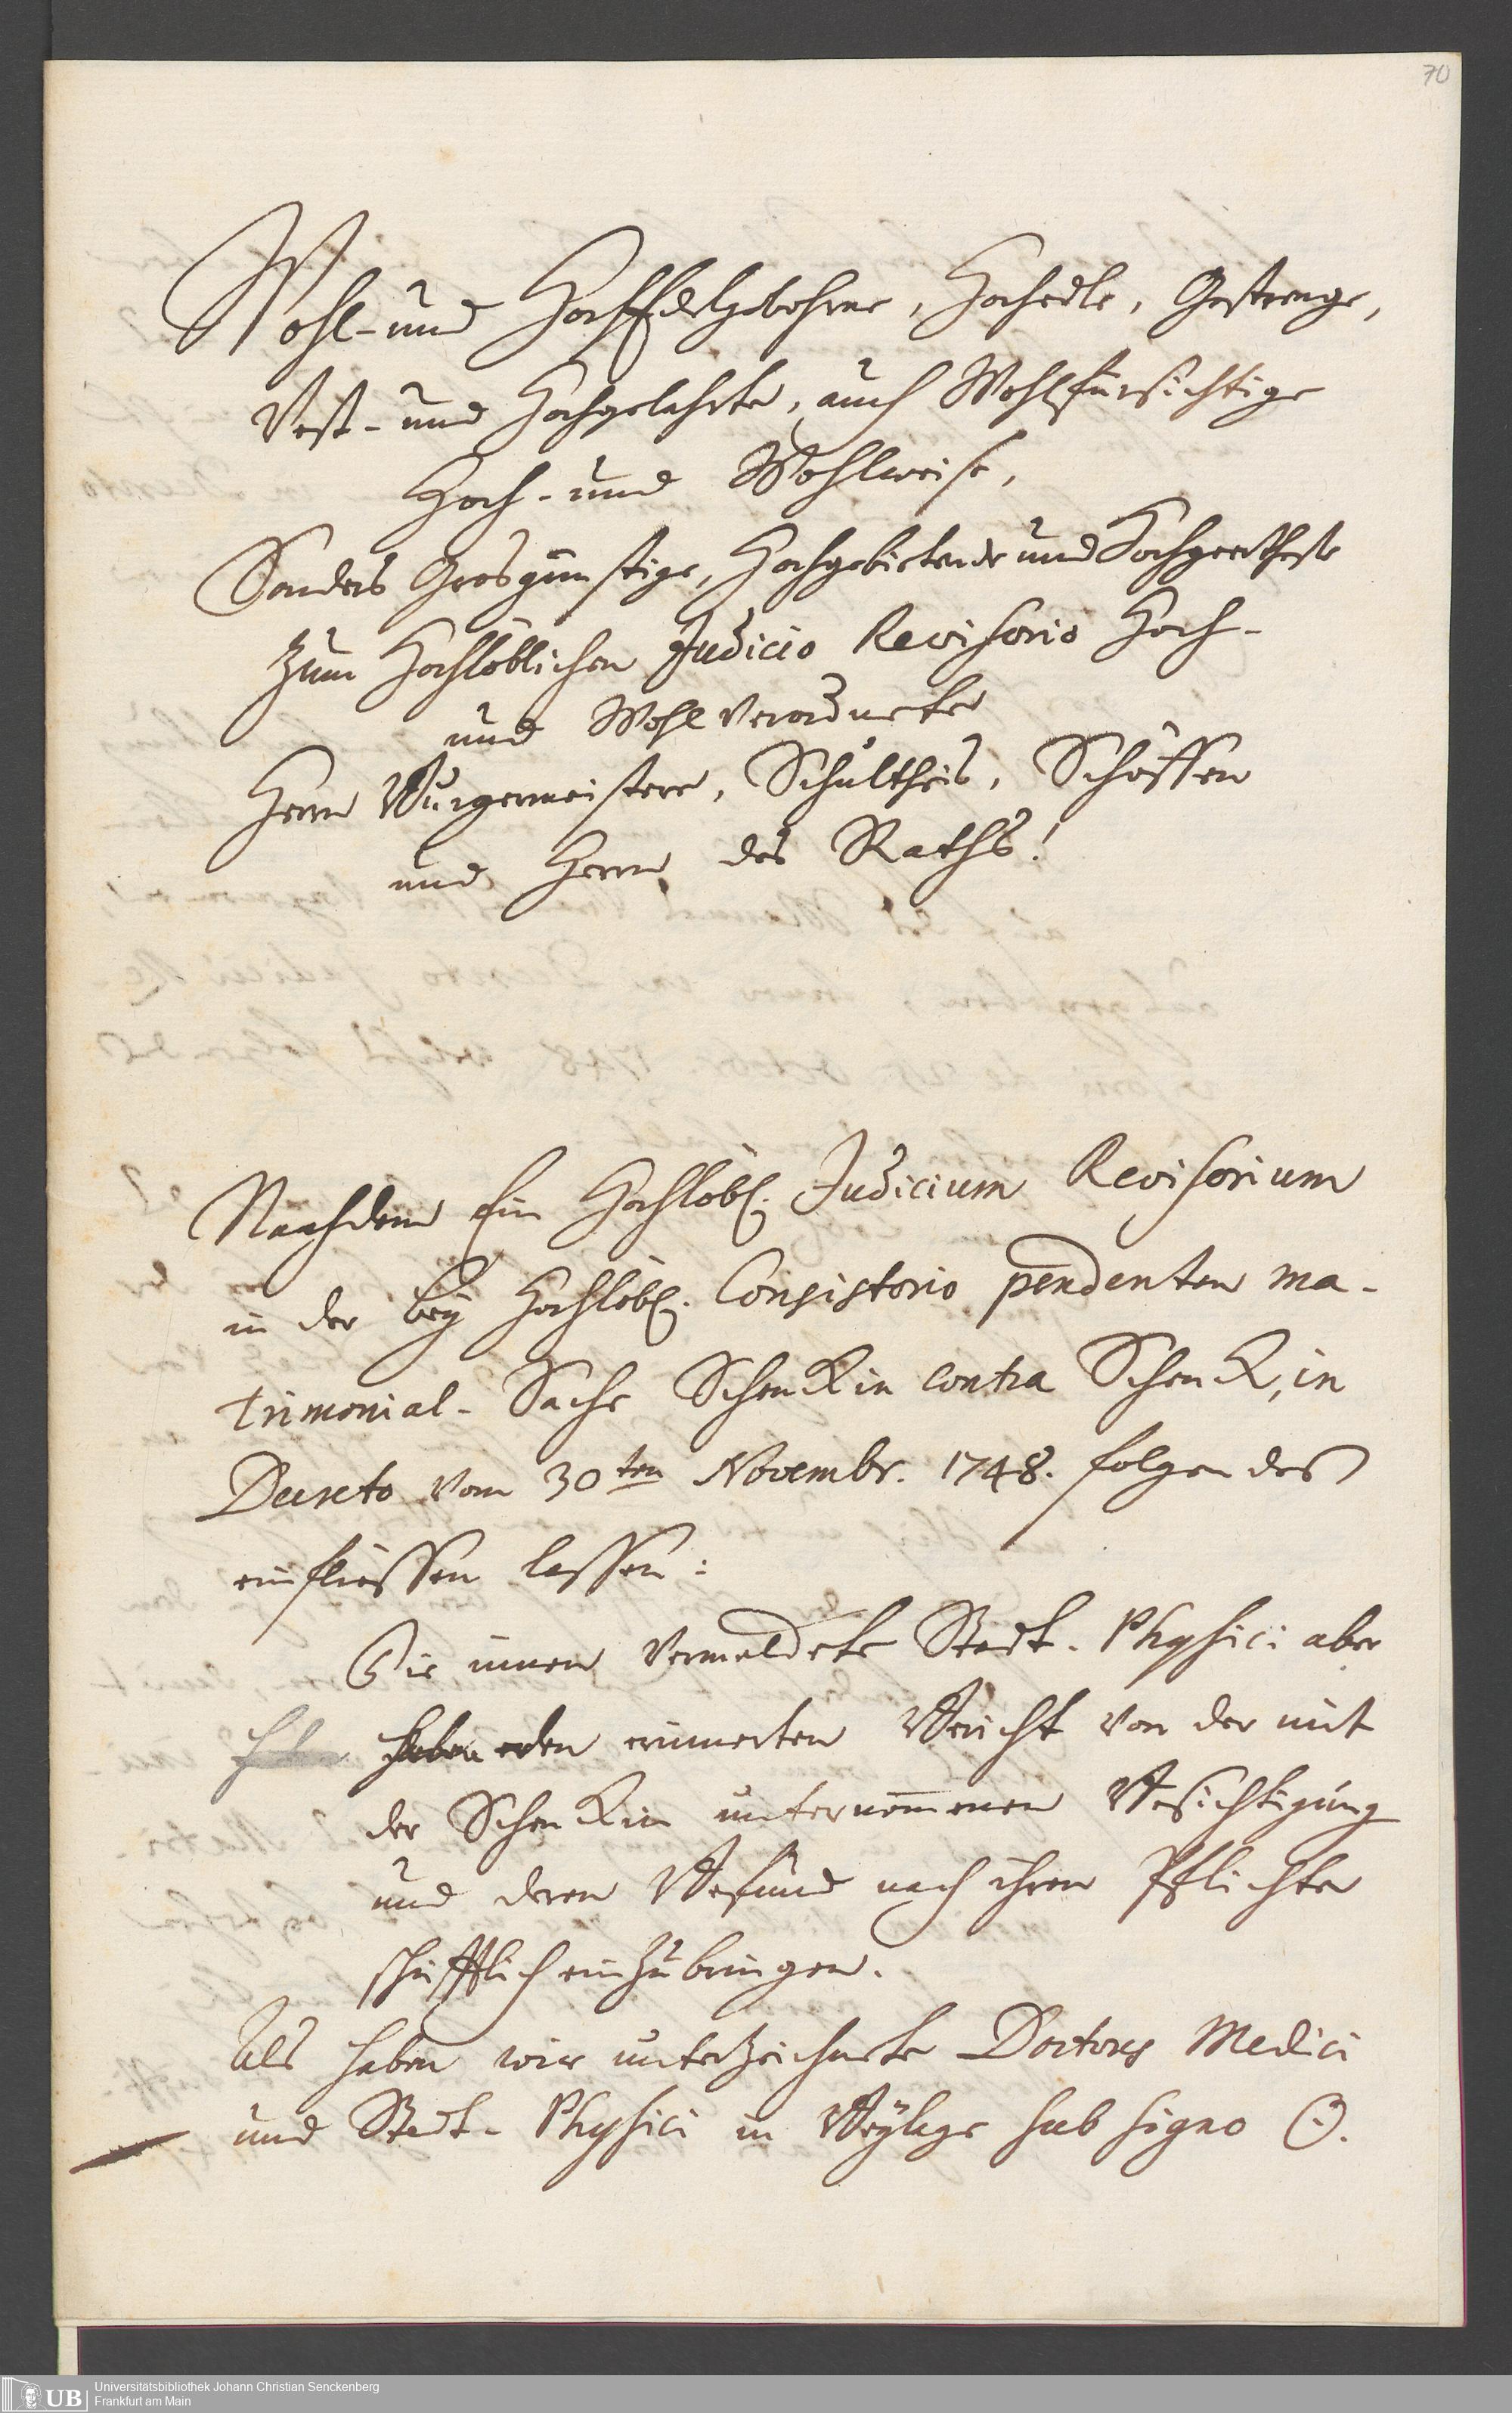 70
Wohl- und HochEdelgebohrne, Hochedle, Gestrenge,
Vest- und Hochgelahrte, auch Wohlfürsichtige
Hoch- und Wohlweise,
Sonders Grosgünstige, Hochgebietende und Hochgeehrteste
zum Hochlöblichen Judicio Revisorio Hoch-
und Wohlverordnete
Herrn Burgermeistere, Schultheis, Schöffen
und Herrn des Raths!
Nachdem Ein Hochlöbl. Judicium Revisorium
in der bey Hochlöbl. Consistorio pendenten ma-
trimonial-Sache Schenckin contra Schenck, in
Decreto vom 30ten Novembr. 1748. folgendes
einfliessen lassen:
Die innen vermeldete Stadt-Physici aber
haben den erinnerten Bericht von der mit
der Schenckin unternom̅enen Besichtigung
und deren Befund nach ihren Pflichten
schrifftlich einzubringen.
Als haben wir unterzeichnete Doctores Medici
und Stadt-Physici in Beylage sub signo ☉.
UB
Universitätsbibliothek Johann Christian Senckenberg
Frankfurt am Main